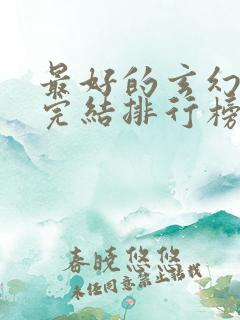 最好的玄幻
完结排行榜
春晓悠悠
未经同意禁止转载